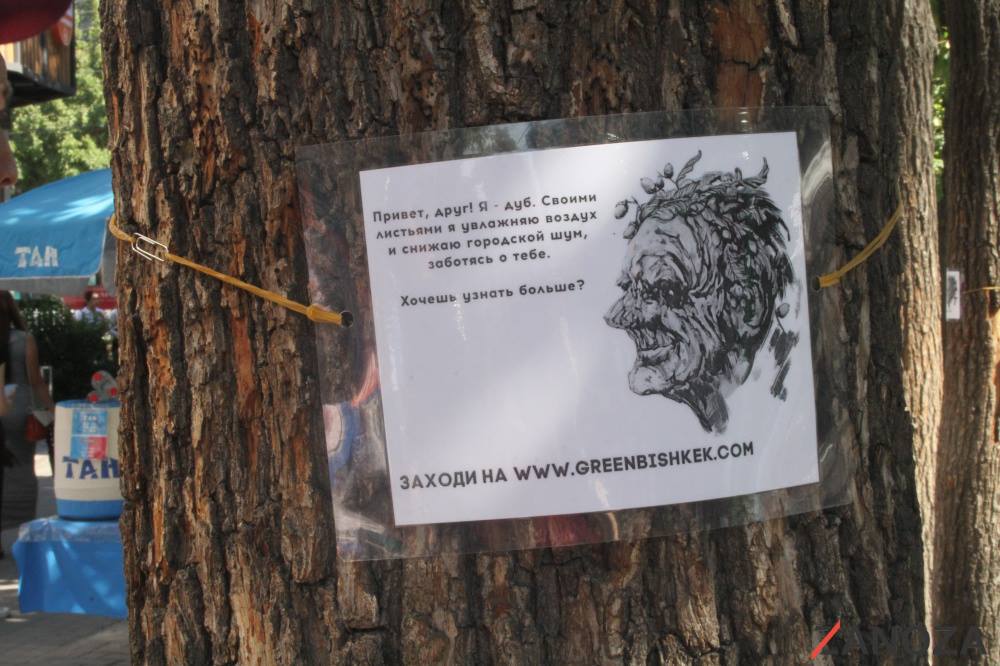 Привет, друг! Я - дуб. Своими
листьями я увлажняю воздух
и снижаю городской шум,
заботясь о тебе.
Хочешь узнать больше?
ЗАХОДИ НА WWW.GREENBISHKEK.COM
ТАН
ТАН
ТАН
KANOZA